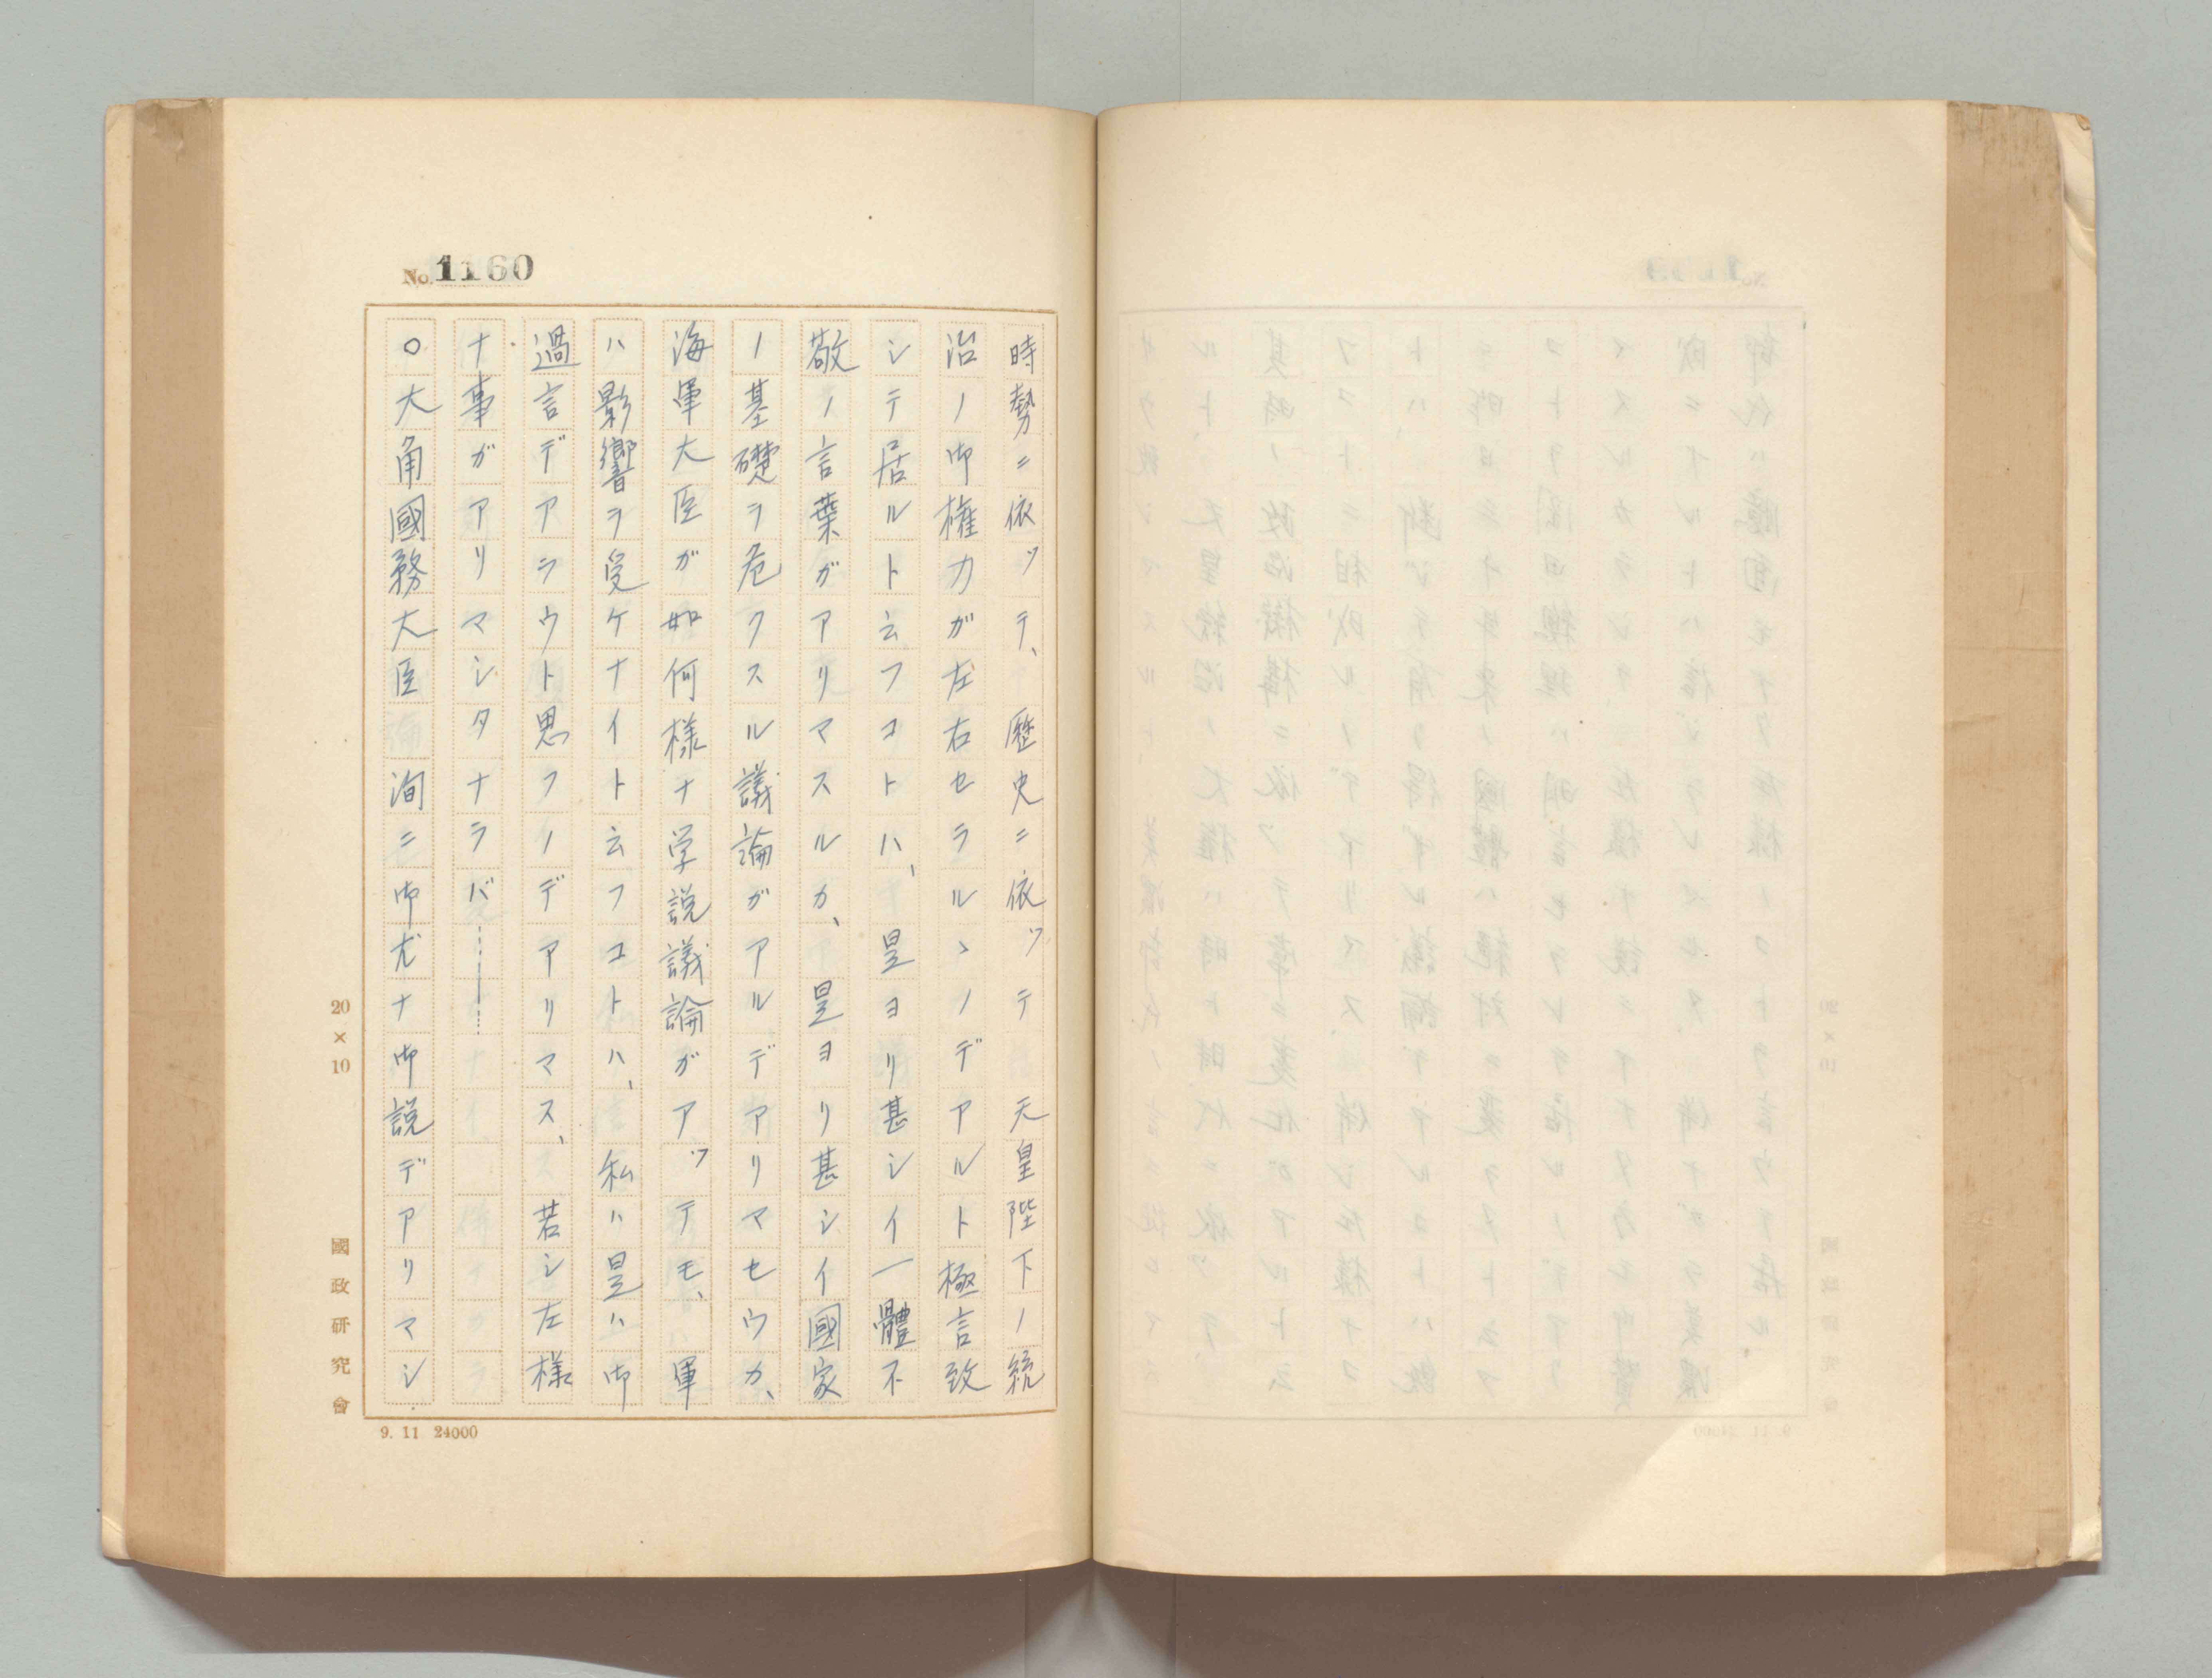 No. 1160
時勢ニ依ッテ、歴史ニ依ッテ　天皇陛下ノ統
治ノ御権力ガ左右セラルヽノデアルト極言致
シテ居ルト云フコトハ、是ヨリ甚シイ一體不
敬ノ言葉ガアリマスルカ、是ヨリ甚シイ國家
ノ基礎ヲ危クスル議論ガアルデアリマセウカ、
海軍大臣ガ如何様ナ学説議論ガアッテモ、軍
ハ影響ヲ受ケナイト云フコトハ、私ハ是ハ御
過言デアラウト思フノデアリマス、若シ左様
ナ事ガアリマシタナラバ……
○大角國務大臣　洵ニ御尤ナ御説デアリマシ
20×10
國政研究會
9. 11 24000